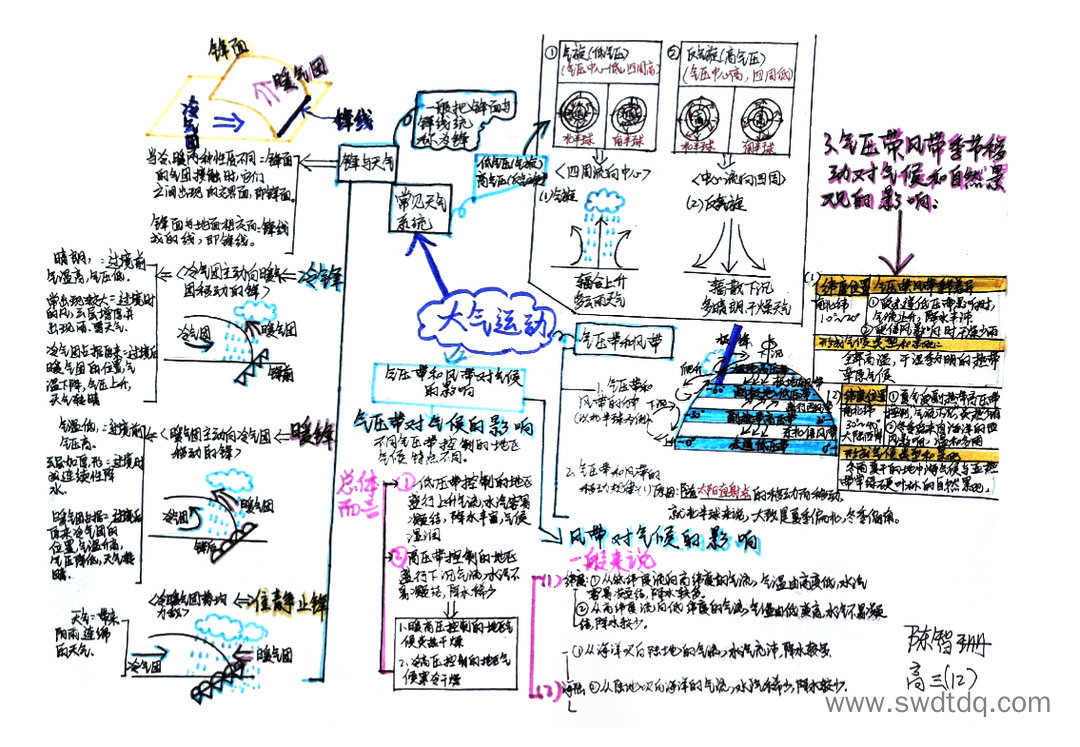 大气运动
常见天气
系统
锋与天气
一般把锋面与
锋线统
称为锋
锋面
暖气团
冷气团
锋线
当冷、暖两种性质不同=锋面
的气团接触时,它们
之间出现的交界面,即锋面。
锋面与地面相交而=锋线
成的线,即锋线。
冷锋
<冷气团主动向暖气
团移动的锋>
晴朗,=过境前
气温高,气压低.
常出现较大=过境时
的风,云层增厚并
出现雨、雪天气.
冷气团占据原来=过境后
暖气团的位置,气
温下降,气压上升,
天气转晴
冷气团
暖气团
暖锋
<暖气团主动向冷气团
移动的锋>
气温低,=过境前
气压高.
过境时
连续性降
水.
暖气团占据=过境后
原来冷气团的
位置,气温升高,
气压降低,天气转
晴.
冷气团
暖气团
准静止锋
<冷暖气团势均
力敌>
天气=带来
阴雨连绵
的天气.
冷气团
暖气团
低气压(气旋)
高气压(反气旋)
① 气旋(低气压)
(气压中心低,四周高)
低
低
北半球
南半球
<四周流向中心>
(1)气旋
辐合上升
多云雨天气
② 反气旋(高气压)
(气压中心高,四周低)
高
高
北半球
南半球
<中心流向四周>
(2)反气旋
辐散下沉
多晴朗、干燥天气
气压带和风带
1. 气压带和
风带的分布
(以北半球为例)
下沉
极锋
副热带高气压带
赤道低气压带
2. 气压带和风带的
移动规律
(1)原因:随太阳直射点的移动而移动.
就北半球来说,大致是夏季偏北,冬季偏南.
气压带和风带对气候
的影响
气压带对气候的影响
不同气压带控制的地区
气候特点不同.
总体
而言
① 低压带控制的地区
盛行上升气流,水汽容易
凝结,降水丰富,气候
湿润
② 高压带控制的地区
盛行下沉气流,水汽不
易凝结,降水稀少
1. 暖高压控制的地区气
候炎热干燥
2. 冷高压控制的地区气
候寒冷干燥
风带对气候的影响
一般来说
(1)纬度:①从低纬度流向高纬度的气流,气温由高变低,水汽
容易凝结,降水较多.
②从高纬度流向低纬度的气流,气温由低变高,水气不易凝
结,降水较少.
①从海洋吹向陆地的气流,水气充沛,降水较多.
(2)海陆:②从陆地吹向海洋的气流,水汽稀少,降水较少.
3.气压带风带季节移
动对气候和自然景
观的影响:
(1)
纬度位置
南北纬
10°~20°
①受赤道低气压带影响时,
气流上升,降水丰沛
②受信风影响时干燥少雨
形成气候类型和景观:
全年高温,干湿季分明的热带
草原气候
(2)
纬度位置
南北纬
30°~40°
大陆西岸
①夏季受副热带高压带
控制,气流下沉,炎热干燥
②冬季受来自海洋的西
风影响,温和多雨
形成气候类型和景观
冬雨夏干的地中海气候与亚热
带常绿硬叶林的自然景观.
陈智珊
高三(12)
www.swdtdq.com